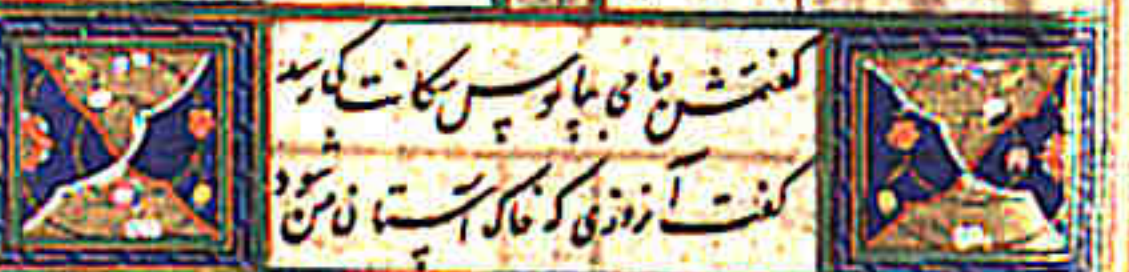 گفتمش جامی بپابوس سگانت کی رسد
گفت آن روزی که خاک آستان من شود